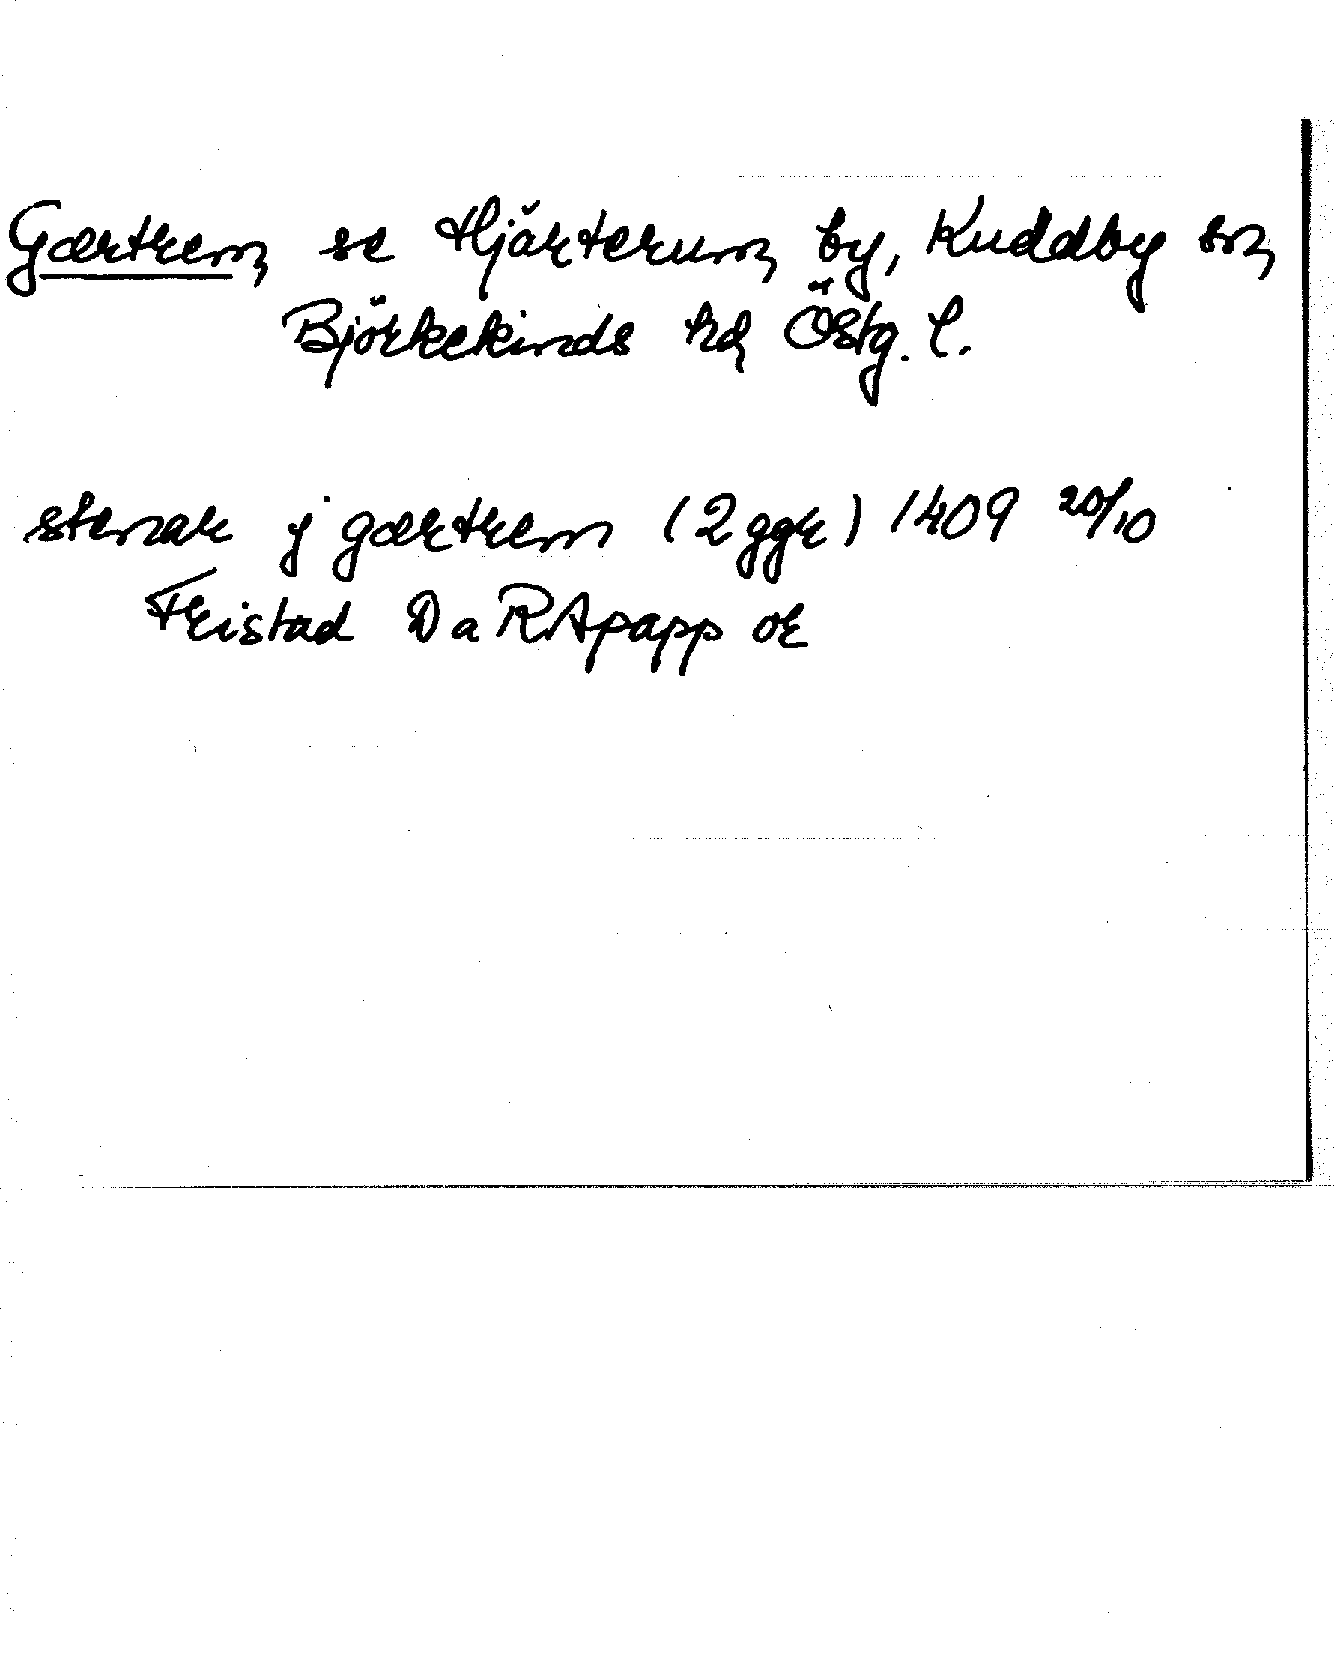 Gærtrem se Hjärterum by, Kuddby sn
Björkekinds hd Östg. l.
stenar j gærtrem (2 ggr) 1409 20/10
Fristad Da RApapp or